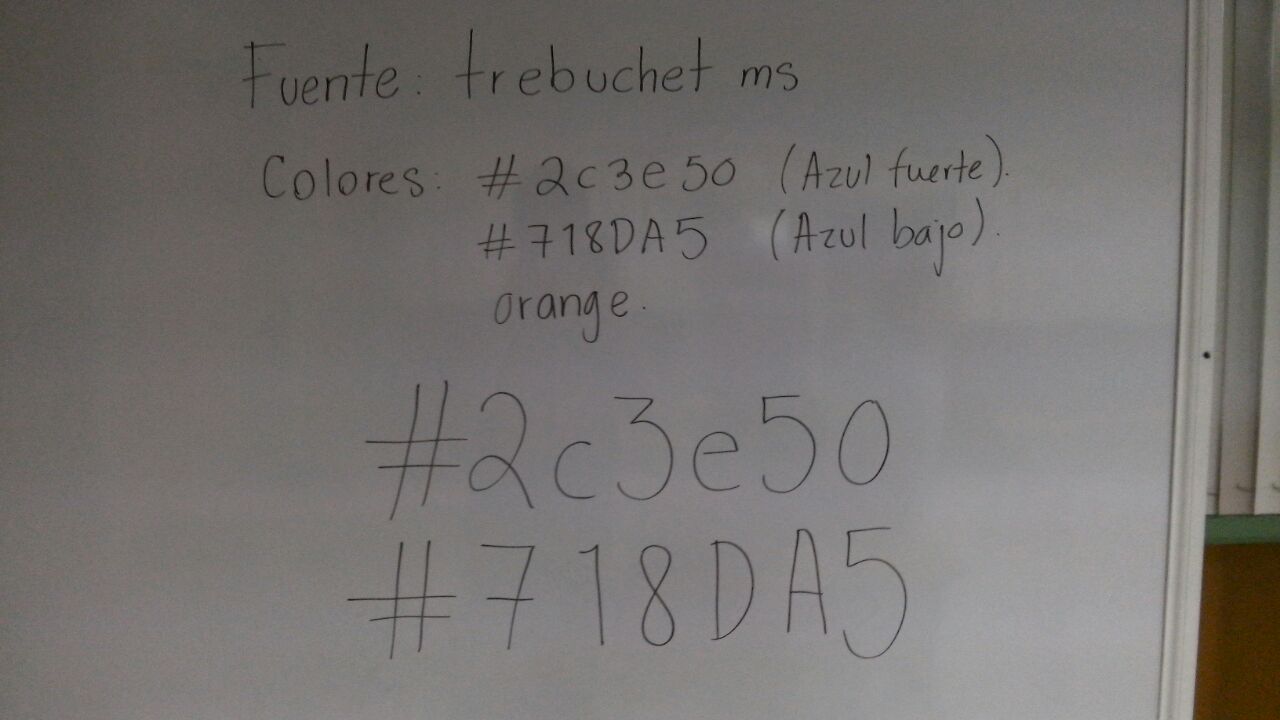 Fuente: trebuchet ms
Colores: #2c3e50 (Azul fuerte).
#718DA5 (Azul bajo).
orange.
#2c3e50
#718DA5